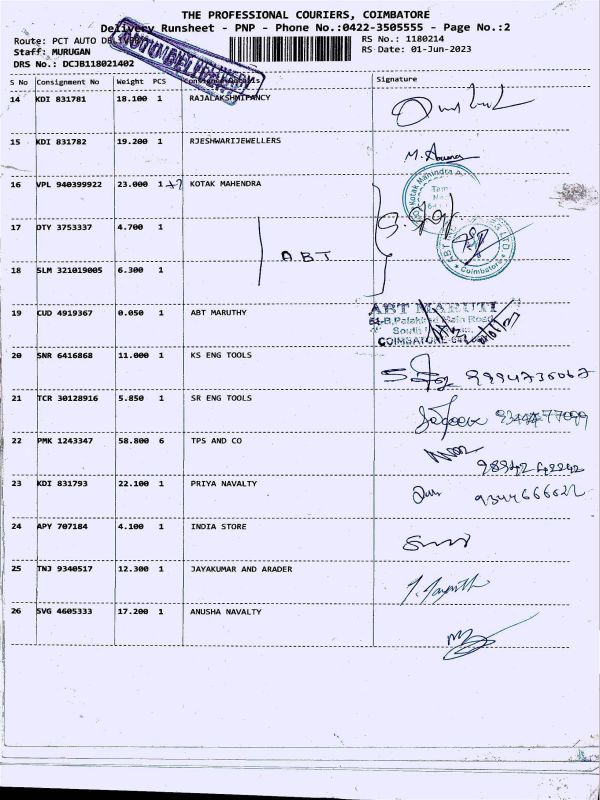 THE PROFESSIONAL COURIERS, COIMBATORE
Delivery Runsheet - PNP - Phone No.:0422-3505555 - Page No.:2
Route: PCT AUTO
Staff: MURUGAN
DRS No.: DCJB118021402
RS No.: 1180214
RS Date: 01-Jun-2023
S No Consignment No Weight PCS Signature
14 KDI 831781 18.100 1 RAJALAKSHMIFANCY
15 KDI 831782 19.200 1 RJESHWARIJEWELLERS
16 VPL 940399922 23.000 1 KOTAK MAHENDRA
Kotak Mahindra
17 DTY 3753337 4.700 1
ABT
18 SLM 321019005 6.300 1
Coimbatore
19 CUD 4919367 0.050 1 ABT MARUTHY
ABT MARUTI
Main Road
South
COIMBATORE
20 SNR 6416868 11.000 1 KS ENG TOOLS
21 TCR 30128916 5.850 1 SR ENG TOOLS
22 PMK 1243347 58.800 6 TPS AND CO
23 KDI 831793 22.100 1 PRIYA NAVALTY
24 APY 707184 4.100 1 INDIA STORE
25 TNJ 9340517 12.300 1 JAYAKUMAR AND ARADER
26 SVG 4605333 17.200 1 ANUSHA NAVALTY